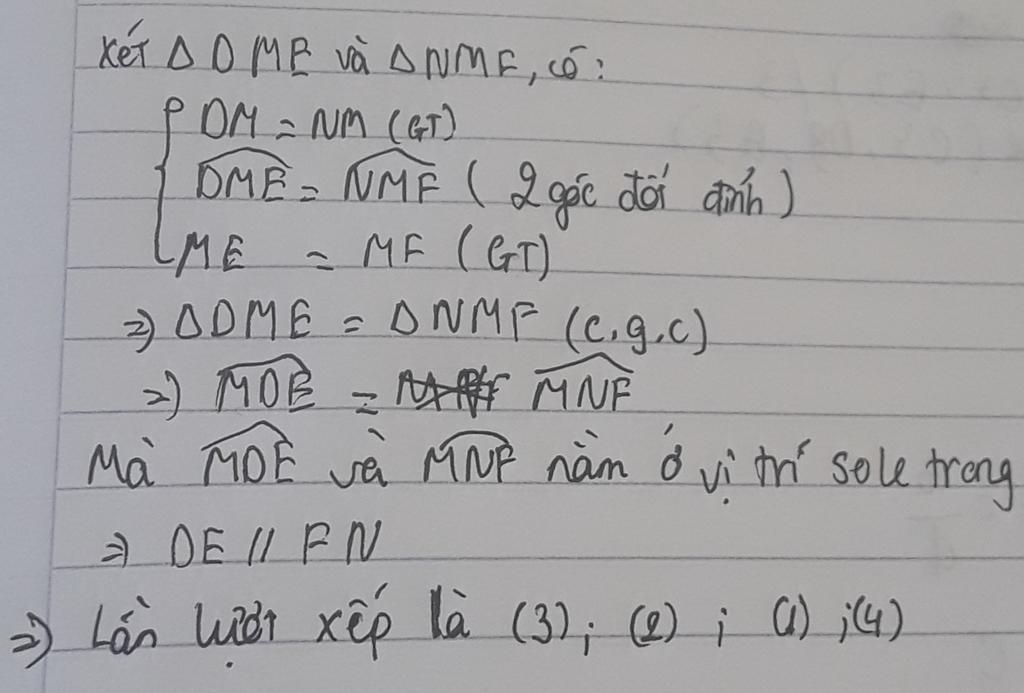 Xét Δ DME và Δ NMF, có:
DM = NM (GT)
DME = NMF ( 2 góc đối đỉnh )
ME = MF (GT)
⇒ Δ DME = Δ NMF (c.g.c)
⇒ MDE = MNF
Mà MDE và MNF nằm ở vị trí sole trong
⇒ DE // FN
⇒ Lần lượt xếp là (3); (2) ; (1) ;(4)